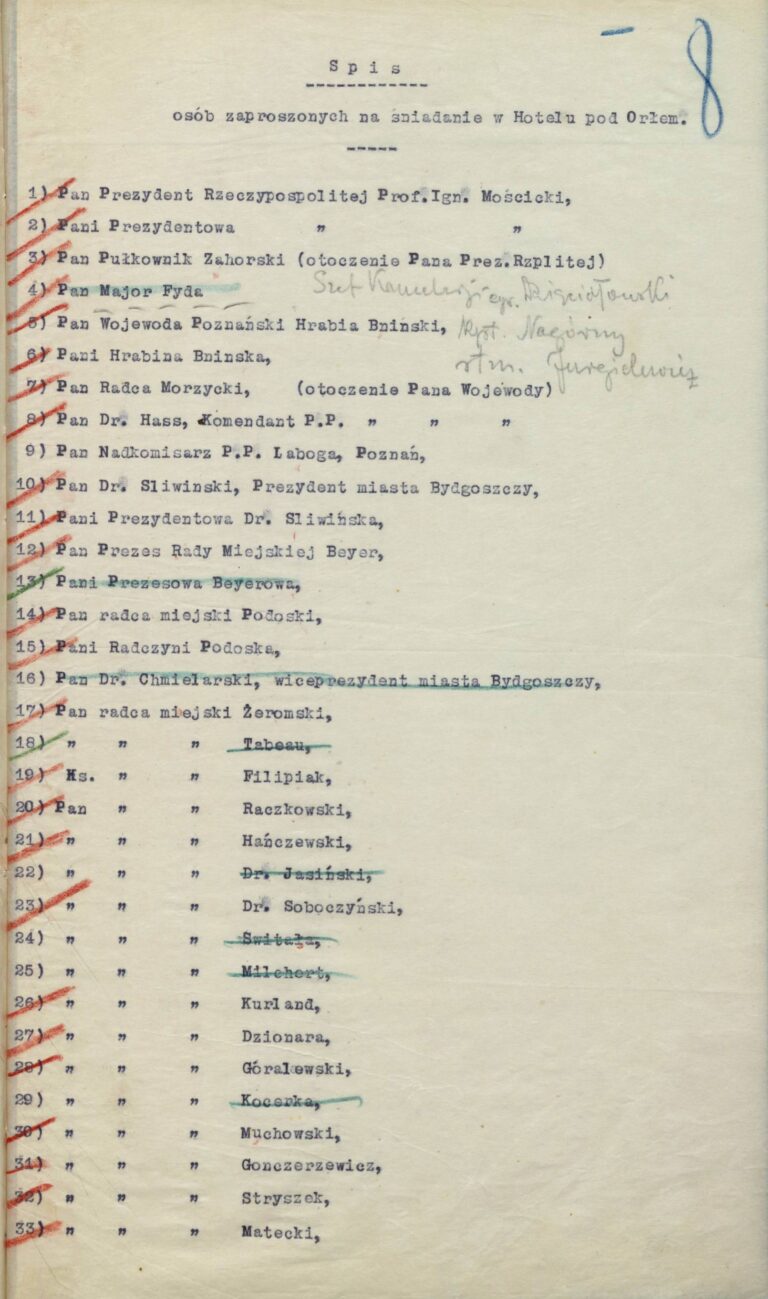 8
Spis
osób zaproszonych na śniadanie w Hotelu pod Orłem.
1) Pan Prezydent Rzeczypospolitej Prof.Ign. Mościcki,
2) Pani Prezydentowa " "
3) Pan Pułkownik Zahorski (otoczenie Pana Prez.Rzplitej)
4) Pan Major Fyda Szef Kancelarji
5) Pan Wojewoda Poznański Hrabia Bniński, kpt. Nagórny
6) Pani Hrabina Bninska, rtm. Jurgielewicz
7) Pan Radca Morzycki, (otoczenie Pana Wojewody)
8) Pan Dr. Hass, Komendant P.P. " " "
9) Pan Nadkomisarz P.P. Laboga, Poznań,
10) Pan Dr. Sliwinski, Prezydent miasta Bydgoszczy,
11) Pani Prezydentowa Dr. Sliwińska,
12) Pan Prezes Rady Miejskiej Beyer,
13) Pani Prezesowa Beyerowa,
14) Pan radca miejski Podoski,
15) Pani Radczyni Podoska,
16) Pan Dr. Chmielarski, wiceprezydent miasta Bydgoszczy,
17) Pan radca miejski Żeromski,
18) " " " Tabeau,
19) Ks. " " Filipiak,
20) Pan " " Raczkowski,
21) " " " Hańczewski,
22) " " " Dr. Jasiński,
23) " " " Dr. Soboczyński,
24) " " " Świtała,
25) " " " Milchert,
26) " " " Kurland,
27) " " " Dzionara,
28) " " " Góralewski,
29) " " " Kocerka,
30) " " " Muchowski,
31) " " " Gonczerzewicz,
32) " " " Stryszek,
33) " " " Matecki,